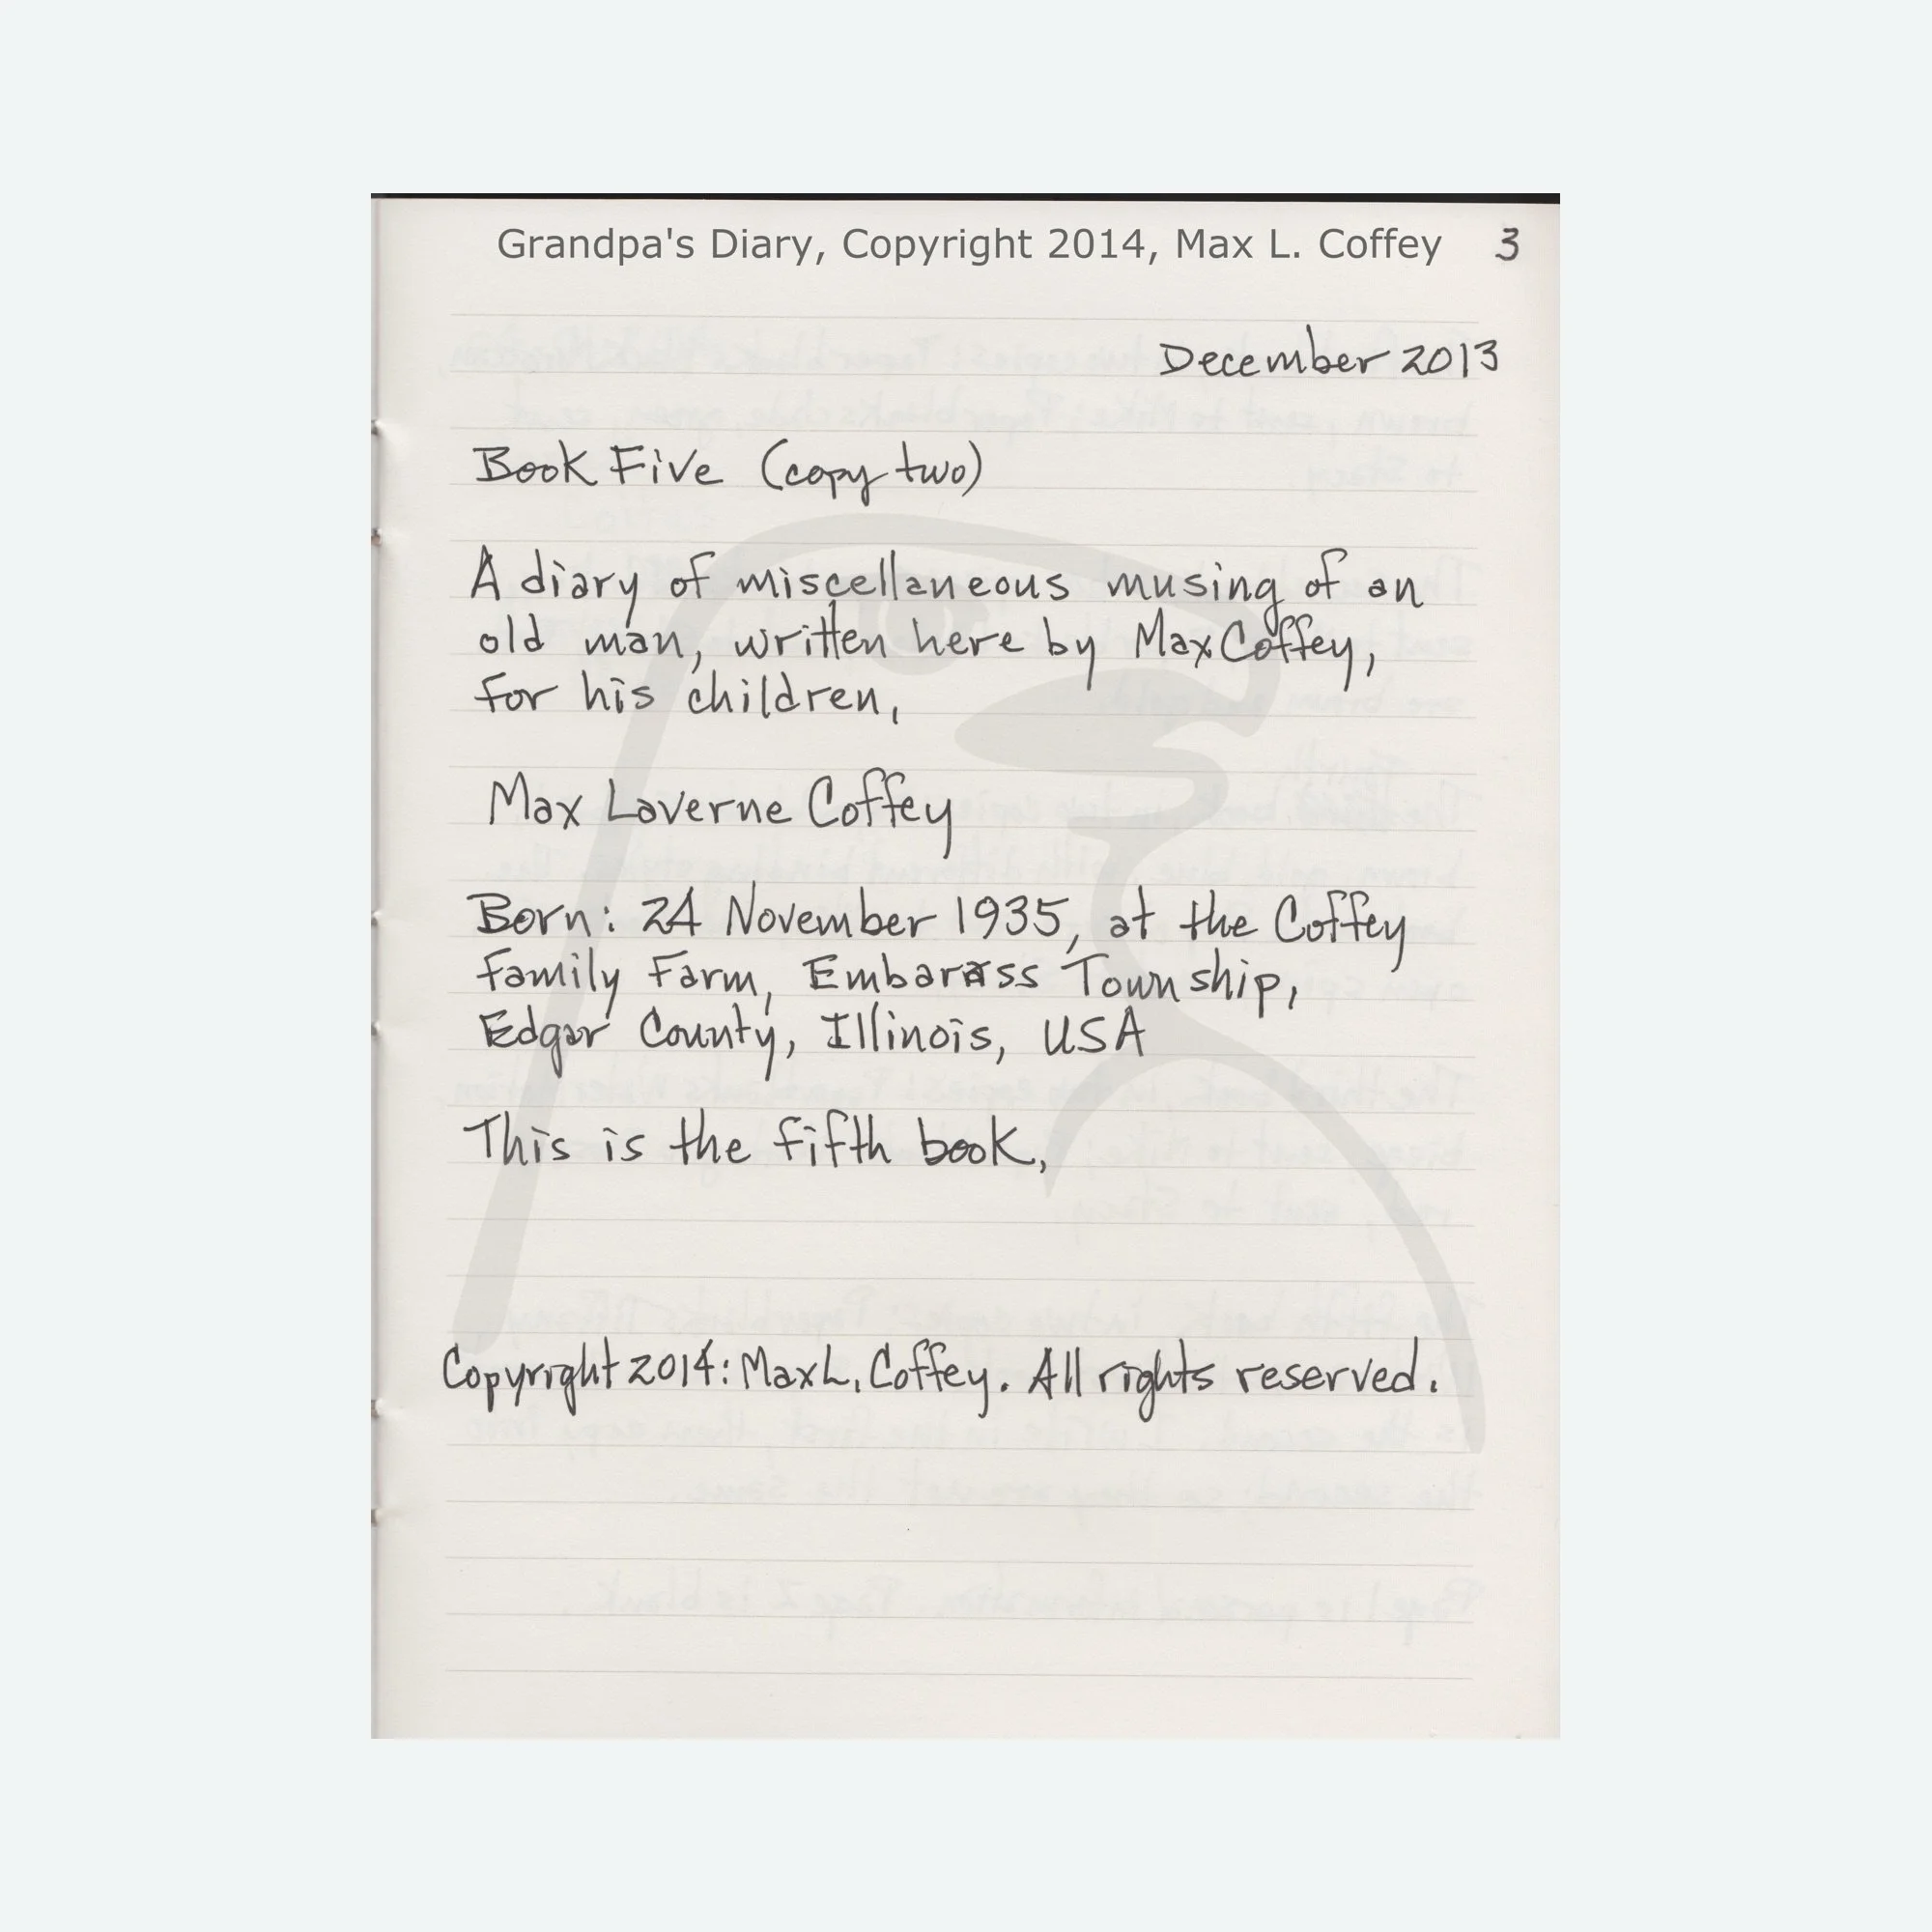 Grandpa's Diary, Copyright 2014, Max L. Coffey 3
December 2013
Book Five (copy two)
A diary of miscellaneous musing of an
old man, written here by Max Coffey,
for his children,
Max Laverne Coffey
Born: 24 November 1935, at the Coffey
family Farm, Embarass Township,
Edgar County, Illinois, USA
This is the fifth book,
Copyright 2014: Max L. Coffey. All rights reserved.